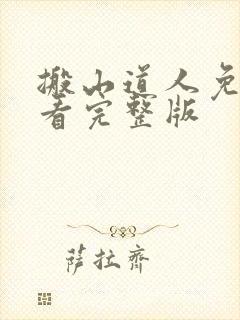 搬山道人免
看完整版
萨拉齐